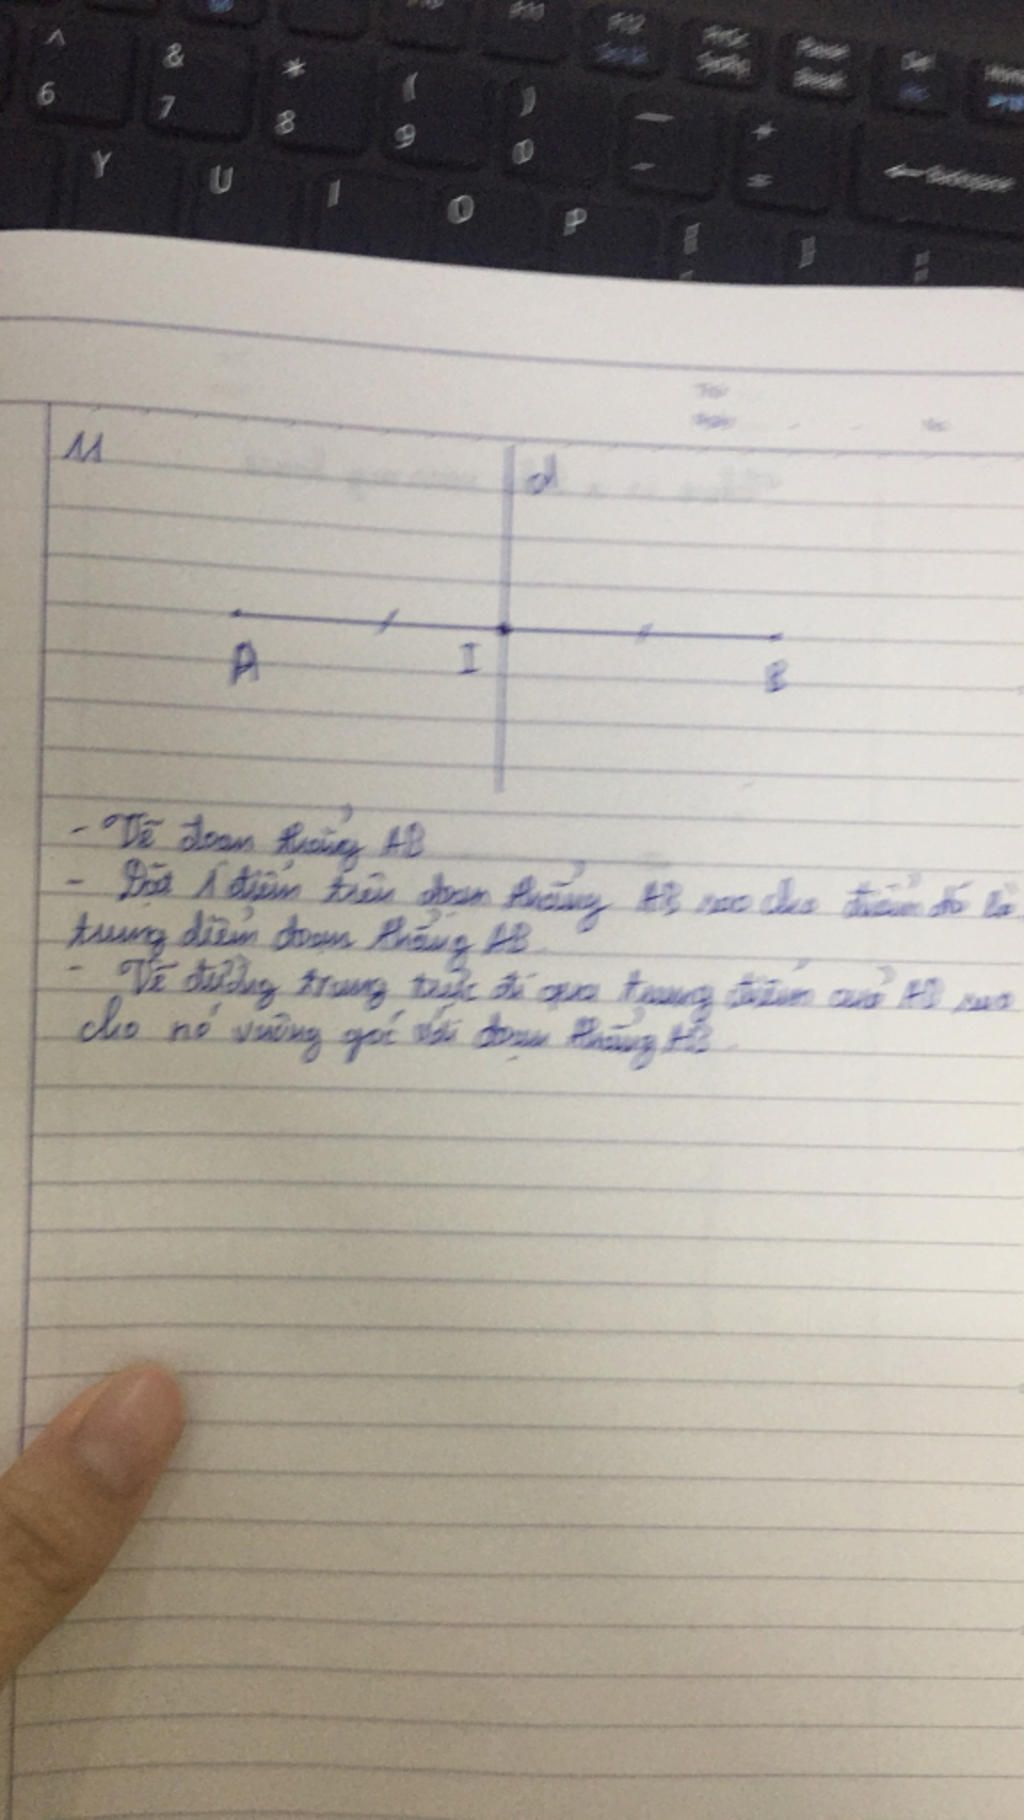 ^ & * ( ) — +
6 7 8 9 0 - =
Backspace
Y U I O P [ ]
11
d
A I B
- Vẽ đoạn thẳng AB
- Đặt 1 điểm trên đoạn thẳng AB sao cho điểm đó là
trung điểm đoạn thẳng AB.
- Vẽ đường trung trực đi qua trung điểm của AB sao
cho nó vuông góc với đoạn thẳng AB.